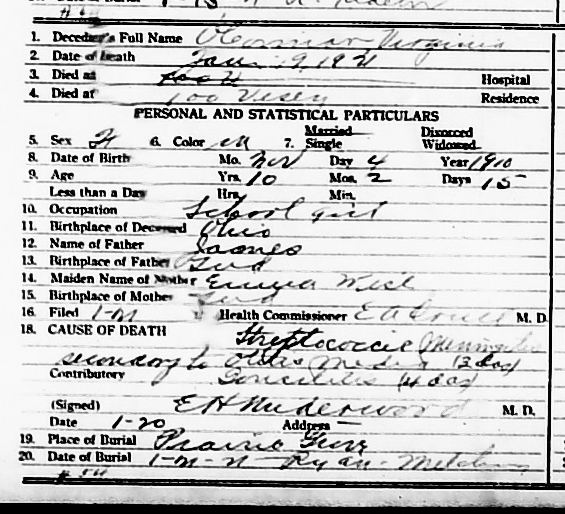 1. Deceder's Full Name Virginia
2. Date of Death Jan 19, 1921
3. Died at Hospital
4. Died at 700 Vesey Residence
PERSONAL AND STATISTICAL PARTICULARS
5. Sex F 6. Color W 7. Married Single Divorced Widowed
8. Date of Birth Mo. Nov Day 4 Year 1910
9. Age Yrs. 10 Mos. 2 Days 15
Less than a Day Hrs. Min.
10. Occupation School girl
11. Birthplace of Deceased Ohio
12. Name of Father James
13. Birthplace of Father Ind
14. Maiden Name of Mother Emma West
15. Birthplace of Mother Ind
16. Filed Health Commissioner M. D.
18. CAUSE OF DEATH Streptococcic Meningitis
secondary to Otitis Media (3 day)
Contributory Tonsilitis (4 day)
(Signed) EH Underwood M. D.
Date 1-20 Address —
19. Place of Burial Prairie Grove
20. Date of Burial